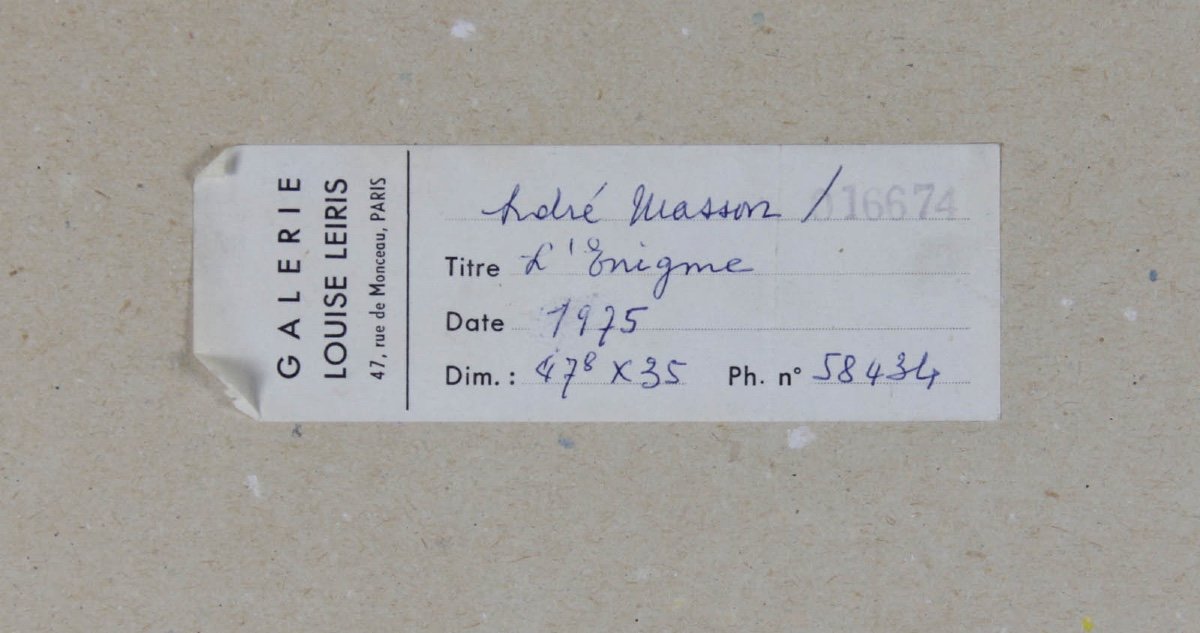 GALERIE
LOUISE LEIRIS
47, rue de Monceau, PARIS
André Masson / 016674
Titre L'Enigme
Date 1975
Dim. : 47⁸ x 35 Ph. n° 58434